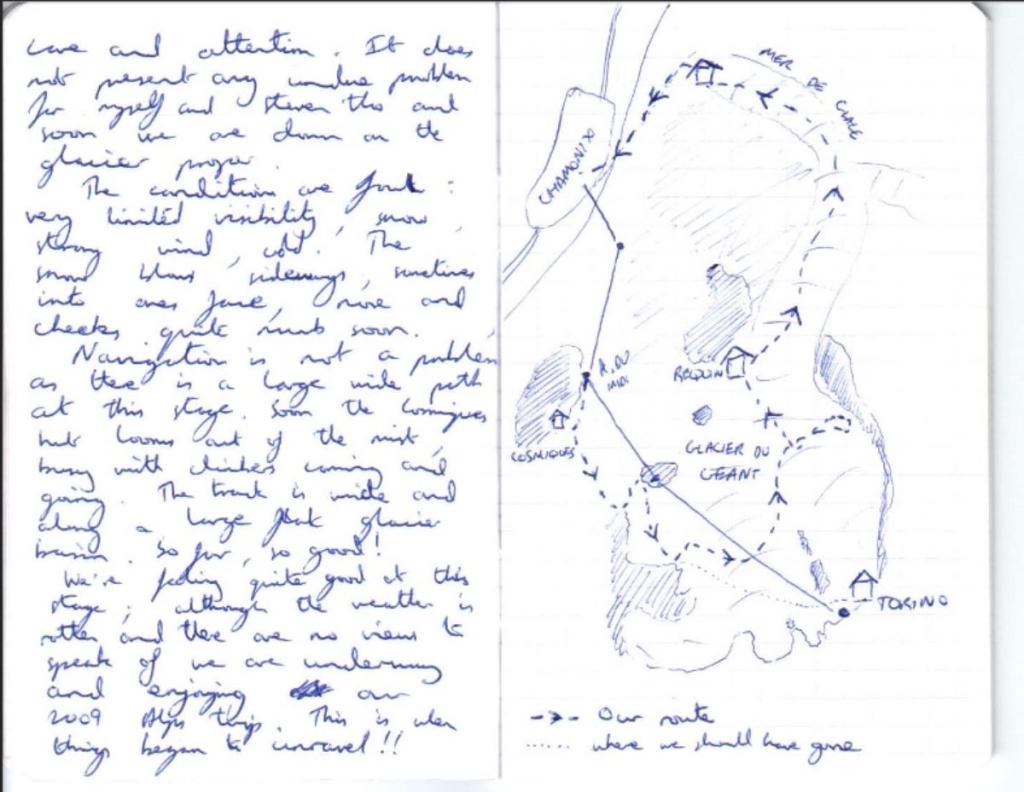 care and attention. It does
not present any undue problem
for myself and Steven tho and
soon we are down on the
glacier proper.
The condition are foul :
very limited visibility, snow
strong wind, cold. The
snow blows sideways, sometimes
into ones face, nose and
cheeks quite numb soon.
Navigation is not a problem
as there is a large wide path
at this stage. Soon the Cosmiques
hut looms out of the mist,
busy with climbers coming and
going. The track is wide and
along a large flat glacier
basin. So far, so good!
We're feeling quite good at this
stage; although the weather is
rotten and there are no views to
speak of we are underway
and enjoying our
2009 Alps trip. This is when
things began to unravel!!
MER DE GLACE
CHAMONIX
A. DU
MIDI
REQUIN
COSMIQUES
GLACIER DU
GEANT
TORINO
Our route
where we should have gone